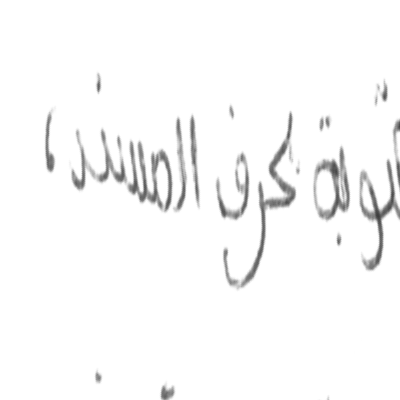 توبة بحرف المسند،